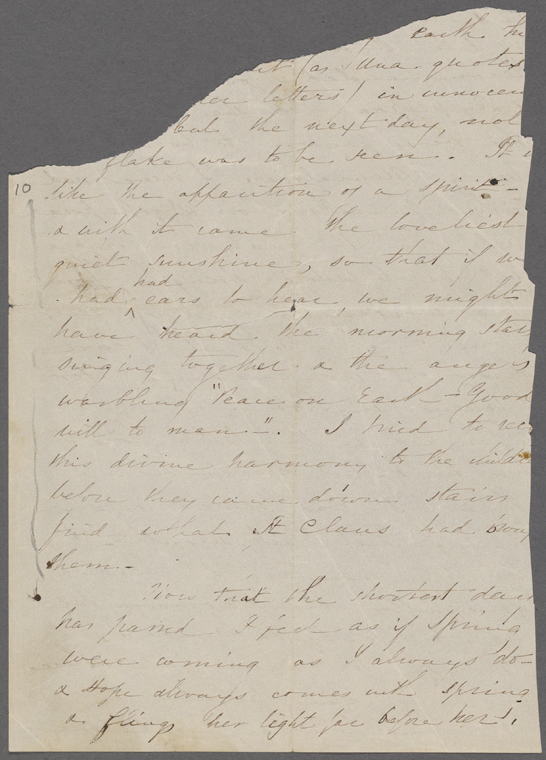 earth
(as Una quotes
letters) in innocen
but the next day, not
flake was to be seen. It
10
like the apparition of a spirit -
& with it came the loveliest
quiet sunshine, so that if w
had
had ^ ears to hear, we might
have heard the morning star
singing together & the angels
warbling "Peace on Earth - Good
will to man -". I tried to re
this divine harmony to the childr
before they came down stairs
find what St Claus had brou
them. -
Now that the shortest day
has passed I feel as if Spring
were coming as I always do -
& Hope always comes with spring
& flings her light far before her!